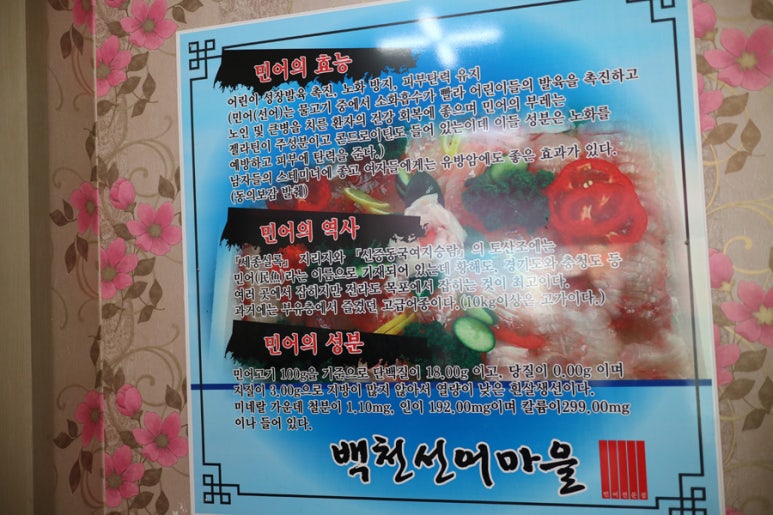 민어의 효능
어린이 성장발육 촉진, 노화 방지, 피부탄력 유지
(민어(선어)는 물고기 중에서 소화흡수가 빨라 어린이들의 발육을 촉진하고
노인 및 큰병을 치른 환자의 건강 회복에 좋으며 민어의 부레는
젤라틴이 주성분이고 콘드로이틴도 들어 있는데 이들 성분은 노화를
예방하고 피부에 탄력을 준다.)
남자들의 스테미너에 좋고 여자들에게는 유방암에도 좋은 효과가 있다.
(동의보감 발췌)
민어의 역사
『세종실록』 지리지와 『신증동국여지승람』의 토산조에는
민어(民魚)라는 이름으로 기재되어 있는데 황해도, 경기도와 충청도 등
여러 곳에서 잡히지만 전라도 목포에서 잡히는 것이 최고이다.
과거에는 부유층에서 즐겼던 고급어종이다.(10kg이상은 고가이다.)
민어의 성분
민어고기 100g을 기준으로 단백질이 18.00g 이고, 당질이 0.00g 이며
지질이 3.00g으로 지방이 많지 않아서 열량이 낮은 흰살생선이다.
미네랄 가운데 철분이 1.10mg, 인이 192.00mg이며 칼륨이299.00mg
이나 들어 있다.
백천선어마을
민어전문점